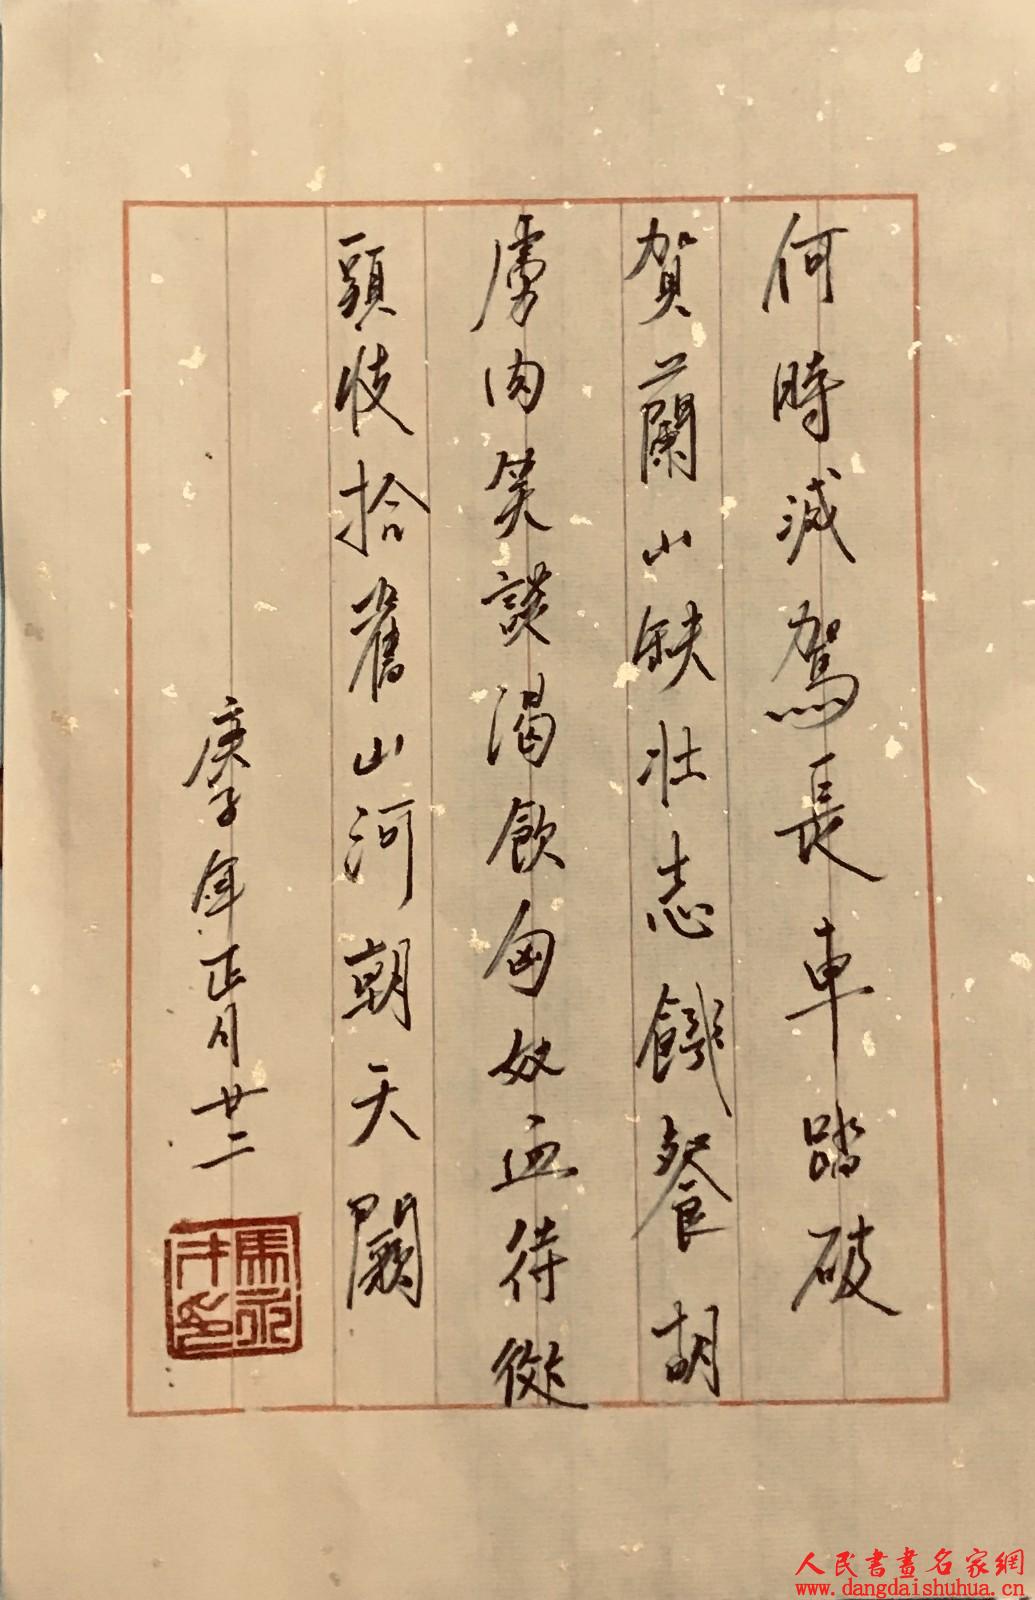 何時滅駕長車踏破
賀蘭山缺壯志饑餐胡
虜肉笑談渴飲匈奴血待從
頭收拾舊山河朝天闕
庚子年正月廿二
馬永
印
人民書畫名家網
www.dangdaishuhua.cn